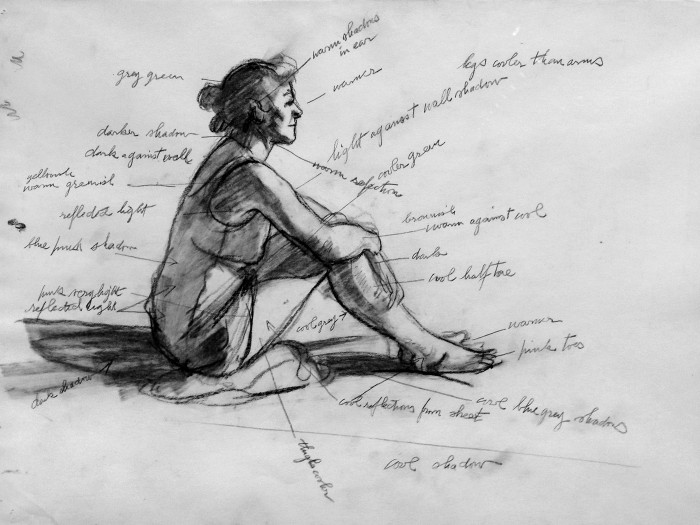 warm shadows
in ear
grey green
warmer
legs cooler than arms
darker shadow
dark against wall
light against wall shadow
cooler green
warm reflection
yellowish
warm greenish
reflected light
brownish
warm against cool
blue pinkish shadow
dark
cool half tone
pink very light
reflected light
cool grey
warmer
pink toes
dark shadow
cool reflections from sheet
cool blue grey shadows
thigh cooler
cool shadow